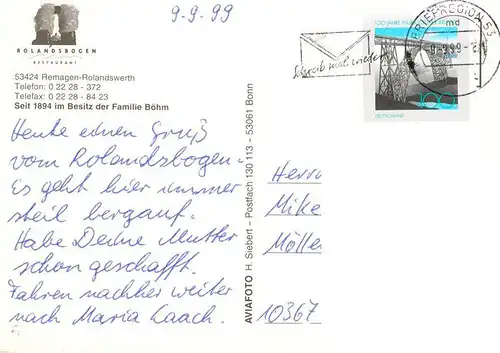 9-9-99
ROLANDSBOGEN
RESTAURANT
53424 Remagen-Rolandswerth
Telefon: 0 22 28 - 372
Telefax: 0 22 28 - 84 23
Seit 1894 im Besitz der Familie Böhm
Heute einen Gruß
vom Rolandsbogen.
Es geht hier immer
steil bergauf.
Habe Deine Mutter
schon geschafft.
Fahren nachher weiter
nach Maria Laach.
AVIAFOTO H. Siebert - Postfach 130 113 - 53061 Bonn
Schreib mal wieder
BRIEFREGION 53
md
-9.-9.99
100 JAHRE
DEUTSCHLAND
100
Herrn
Mike
Mölle
10367